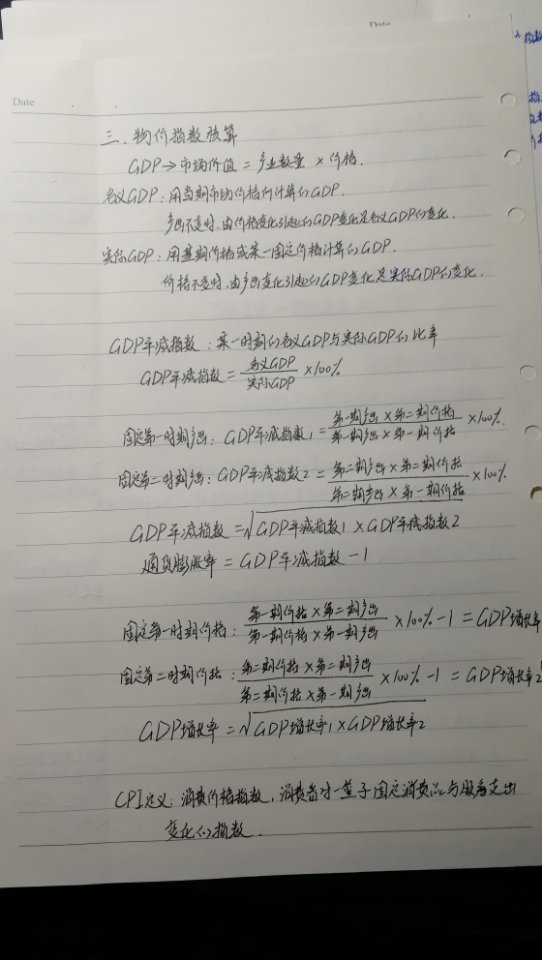 Date
Date
三. 物价指数核算
GDP→市场价值 = 产业数量 × 价格.
名义GDP: 用当期市场价格计算的GDP.
产出不变时, 由价格变化引起的GDP变化是名义GDP的变化.
实际GDP: 用基期价格或某一固定价格计算的GDP.
价格不变时, 由产出变化引起的GDP变化是实际GDP的变化.
GDP平减指数: 某一时期的名义GDP与实际GDP的比率
GDP平减指数 = 名义GDP / 实际GDP ×100%
固定第一时期产出: GDP平减指数1 = 第一期产出×第二期价格 / 第一期产出×第一期价格 ×100%.
固定第二时期产出: GDP平减指数2 = 第二期产出×第二期价格 / 第二期产出×第一期价格 ×100%
GDP平减指数 = √GDP平减指数1×GDP平减指数2
通货膨胀率 = GDP平减指数 -1
固定第一时期价格: 第一期价格×第二期产出 / 第一期价格×第一期产出 ×100% -1 = GDP增长率
固定第二时期价格: 第二期价格×第二期产出 / 第二期价格×第一期产出 ×100% -1 = GDP增长率2
GDP增长率 = √GDP增长率1×GDP增长率2
CPI定义: 消费价格指数, 消费者对一篮子固定消费品与服务支出
变化的指数.